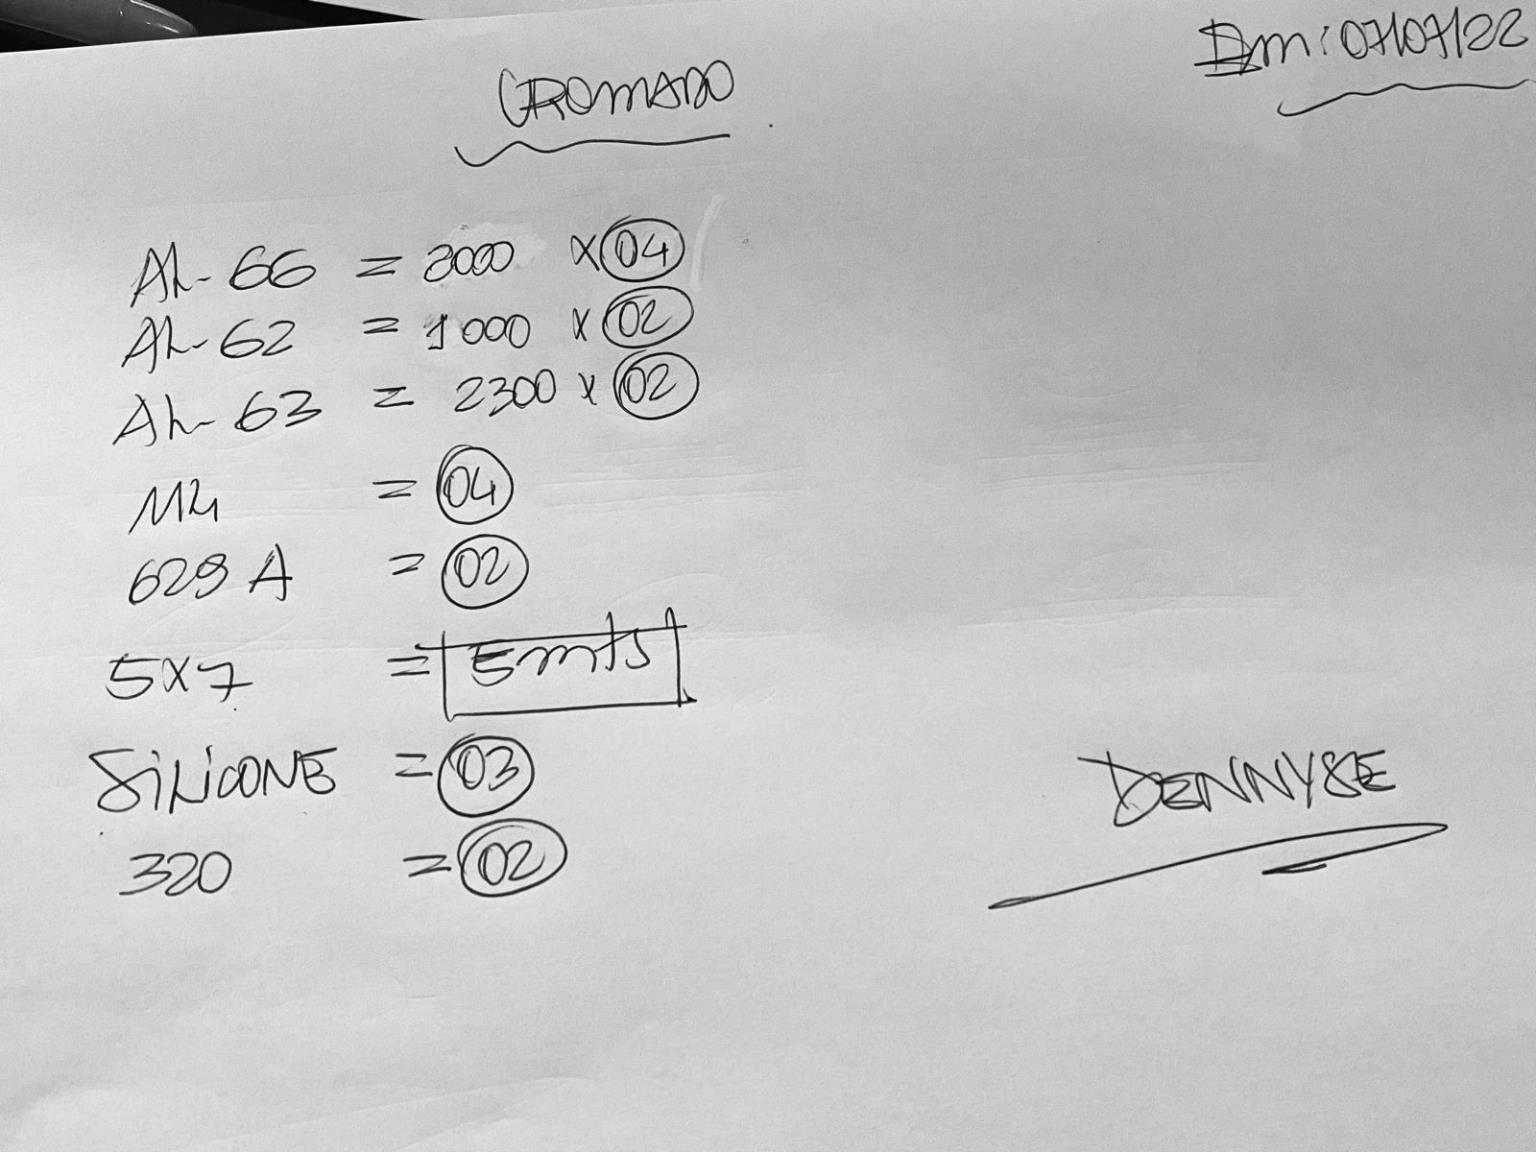 CROMADO
Em: 07/07/22
AL-66 = 2000 x 04
AL-62 = 1000 x 02
AL-63 = 2300 x 02
M4 = 04
629 A = 02
5x7 = 5mts
SiLiCONE = 03
320 = 02
DENNYSE